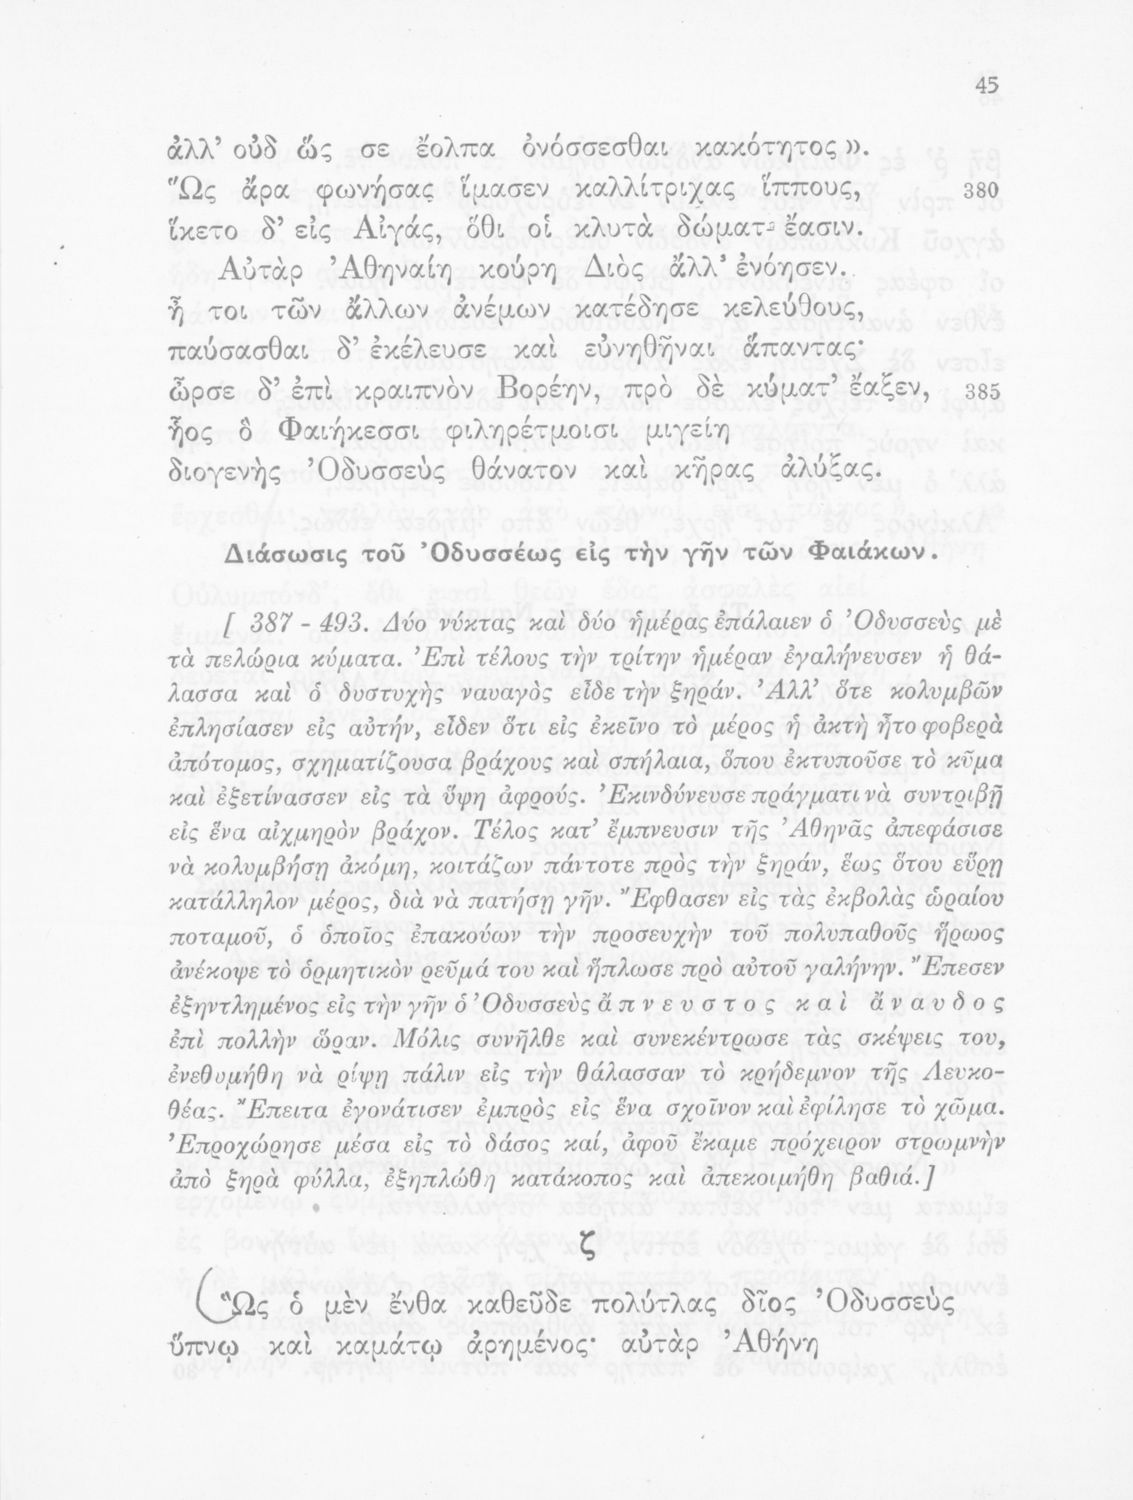 45
ἀλλ’ οὐδ ὥς σε ἔολπα ὀνόσσεσθαι κακότητος ».
Ὣς ἄρα φωνήσας ἵμασεν καλλίτριχας ἵππους, 380
ἵκετο δ’ εἰς Αἰγάς, ὅθι οἱ κλυτὰ δώματ’ ἔασιν.
Αὐτὰρ Ἀθηναίη κούρη Διὸς ἄλλ’ ἐνόησεν.
ἦ τοι τῶν ἄλλων ἀνέμων κατέδησε κελεύθους,
παύσασθαι δ’ ἐκέλευσε καὶ εὐνηθῆναι ἅπαντας·
ὦρσε δ’ ἐπὶ κραιπνὸν Βορέην, πρὸ δὲ κύματ’ ἔαξεν, 385
ἧος ὃ Φαιήκεσσι φιληρέτμοισι μιγείη
διογενὴς Ὀδυσσεὺς θάνατον καὶ κῆρας ἀλύξας.
Διάσωσις τοῦ Ὀδυσσέως εἰς τὴν γῆν τῶν Φαιάκων.
[ 387 - 493. Δύο νύκτας καὶ δύο ἡμέρας ἐπάλαιεν ὁ Ὀδυσσεὺς μὲ
τὰ πελώρια κύματα. Ἐπὶ τέλους τὴν τρίτην ἡμέραν ἐγαλήνευσεν ἡ θά-
λασσα καὶ ὁ δυστυχὴς ναυαγὸς εἶδε τὴν ξηράν. Ἀλλ’ ὅτε κολυμβῶν
ἐπλησίασεν εἰς αὐτήν, εἶδεν ὅτι εἰς ἐκεῖνο τὸ μέρος ἡ ἀκτὴ ἦτο φοβερὰ
ἀπότομος, σχηματίζουσα βράχους καὶ σπήλαια, ὅπου ἐκτυποῦσε τὸ κῦμα
καὶ ἐξετίνασσεν εἰς τὰ ὕψη ἀφρούς. Ἐκινδύνευσε πράγματι νὰ συντριβῇ
εἰς ἕνα αἰχμηρὸν βράχον. Τέλος κατ’ ἔμπνευσιν τῆς Ἀθηνᾶς ἀπεφάσισε
νὰ κολυμβήσῃ ἀκόμη, κοιτάζων πάντοτε πρὸς τὴν ξηράν, ἕως ὅτου εὕρῃ
κατάλληλον μέρος, διὰ νὰ πατήσῃ γῆν. Ἔφθασεν εἰς τὰς ἐκβολὰς ὡραίου
ποταμοῦ, ὁ ὁποῖος ἐπακούων τὴν προσευχὴν τοῦ πολυπαθοῦς ἥρωος
ἀνέκοψε τὸ ὁρμητικὸν ρεῦμά του καὶ ἥπλωσε πρὸ αὐτοῦ γαλήνην. Ἔπεσεν
ἐξηντλημένος εἰς τὴν γῆν ὁ Ὀδυσσεὺς ἄπνευστος καὶ ἄναυδος
ἐπὶ πολλὴν ὥραν. Μόλις συνῆλθε καὶ συνεκέντρωσε τὰς σκέψεις του,
ἐνεθυμήθη νὰ ρίψῃ πάλιν εἰς τὴν θάλασσαν τὸ κρήδεμνον τῆς Λευκο-
θέας. Ἔπειτα ἐγονάτισεν ἐμπρὸς εἰς ἕνα σχοῖνον καὶ ἐφίλησε τὸ χῶμα.
Ἐπροχώρησε μέσα εἰς τὸ δάσος καί, ἀφοῦ ἔκαμε πρόχειρον στρωμνὴν
ἀπὸ ξηρὰ φύλλα, ἐξηπλώθη κατάκοπος καὶ ἀπεκοιμήθη βαθιά.]
ζ
Ὣς ὁ μὲν ἔνθα καθεῦδε πολύτλας δῖος Ὀδυσσεὺς
ὕπνῳ καὶ καμάτῳ ἀρημένος· αὐτὰρ Ἀθήνη